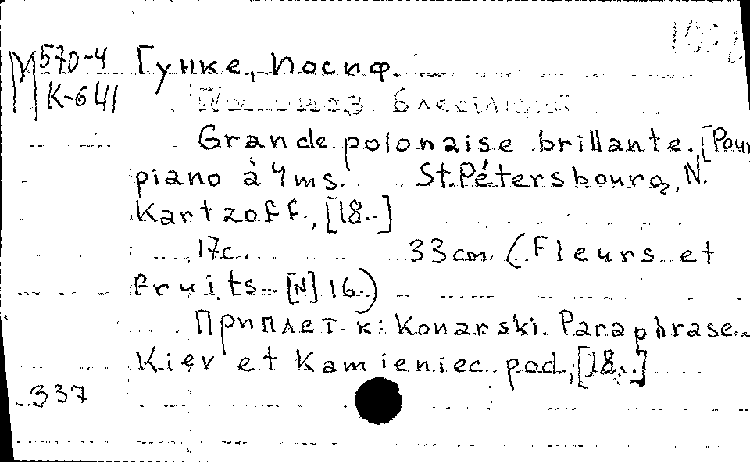 М 570-4
К-641
Гунке, Иосиф.
Grande polonaise brillante. [Pour
piano à 4 ms. St.Pétersbourg, N.
Kartzoff., [18..]
17c. 33 cm (Fleurs et
fruits [N] 16.)
Приплет к: Konarski. Paraphrase..
Kiev et Kamieniec pod, [18..]
337